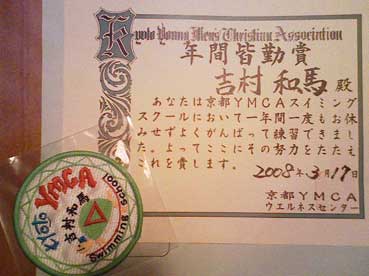 Kyoto Young Men's Christian Association
年間皆勤賞
吉村 和馬 殿
あなたは京都YMCAスイミング
スクールにおいて一年間一度もお休
みせずよくがんばって練習できまし
た。よってここにその努力をたたえ
これを賞します。
2008年3月17日
京都YMCA
ウエルネスセンター
Kyoto YMCA
吉村和馬
Swimming school